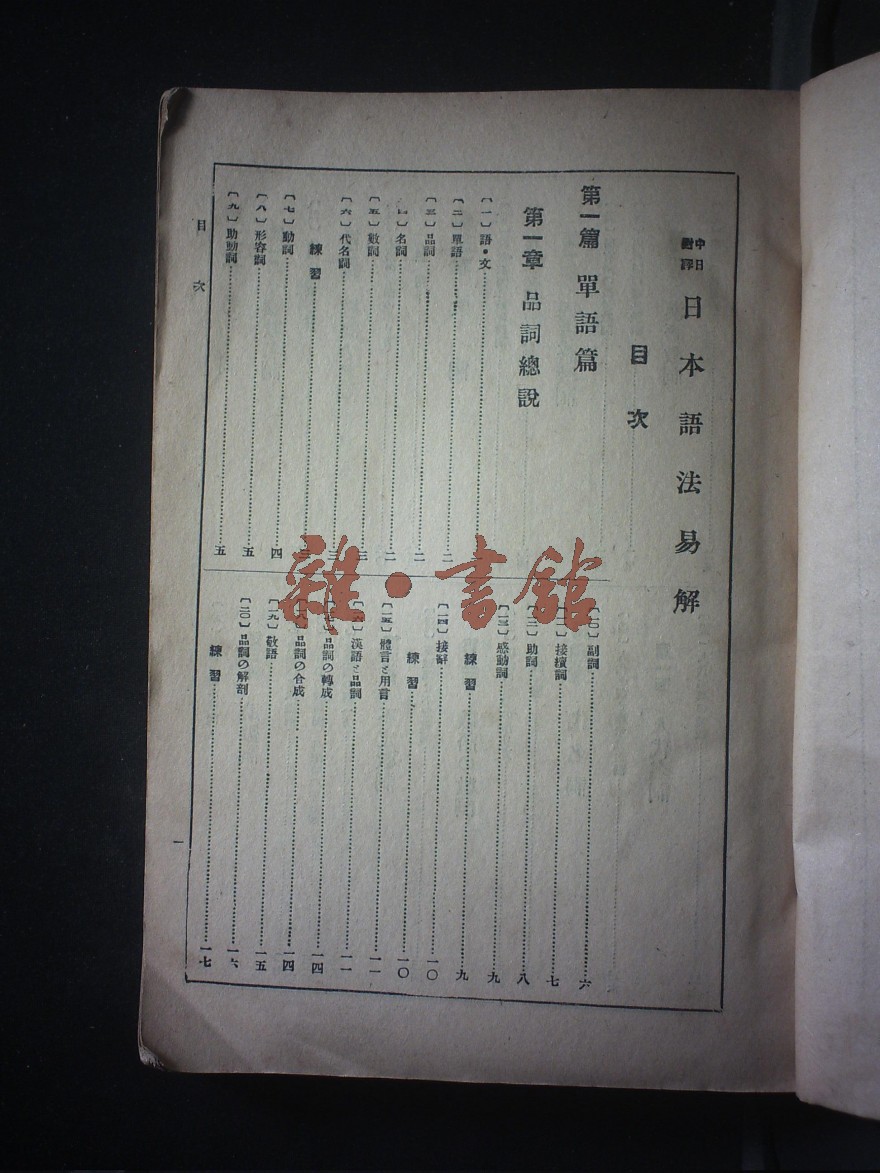 中日對譯 日本語法易解
目次
第一篇 單語篇
第一章 品詞總說
〔一〕語・文………二
〔二〕單語………二
〔三〕品詞………二
〔四〕名詞………二
〔五〕數詞………三
〔六〕代名詞………三
練習………三
〔七〕動詞………四
〔八〕形容詞………五
〔九〕助動詞………五
〔一〇〕副詞………六
〔一一〕接續詞………七
〔一二〕助詞………八
〔一三〕感動詞………九
練習………九
〔一四〕接辭………一〇
練習………一〇
〔一五〕體言と用言………一一
〔一六〕漢語と品詞………一一
〔一七〕品詞の轉成………一四
〔一八〕品詞の合成………一四
〔一九〕敬語………一五
〔二〇〕品詞の解剖………一六
練習………一七
目次
一
雜・書館